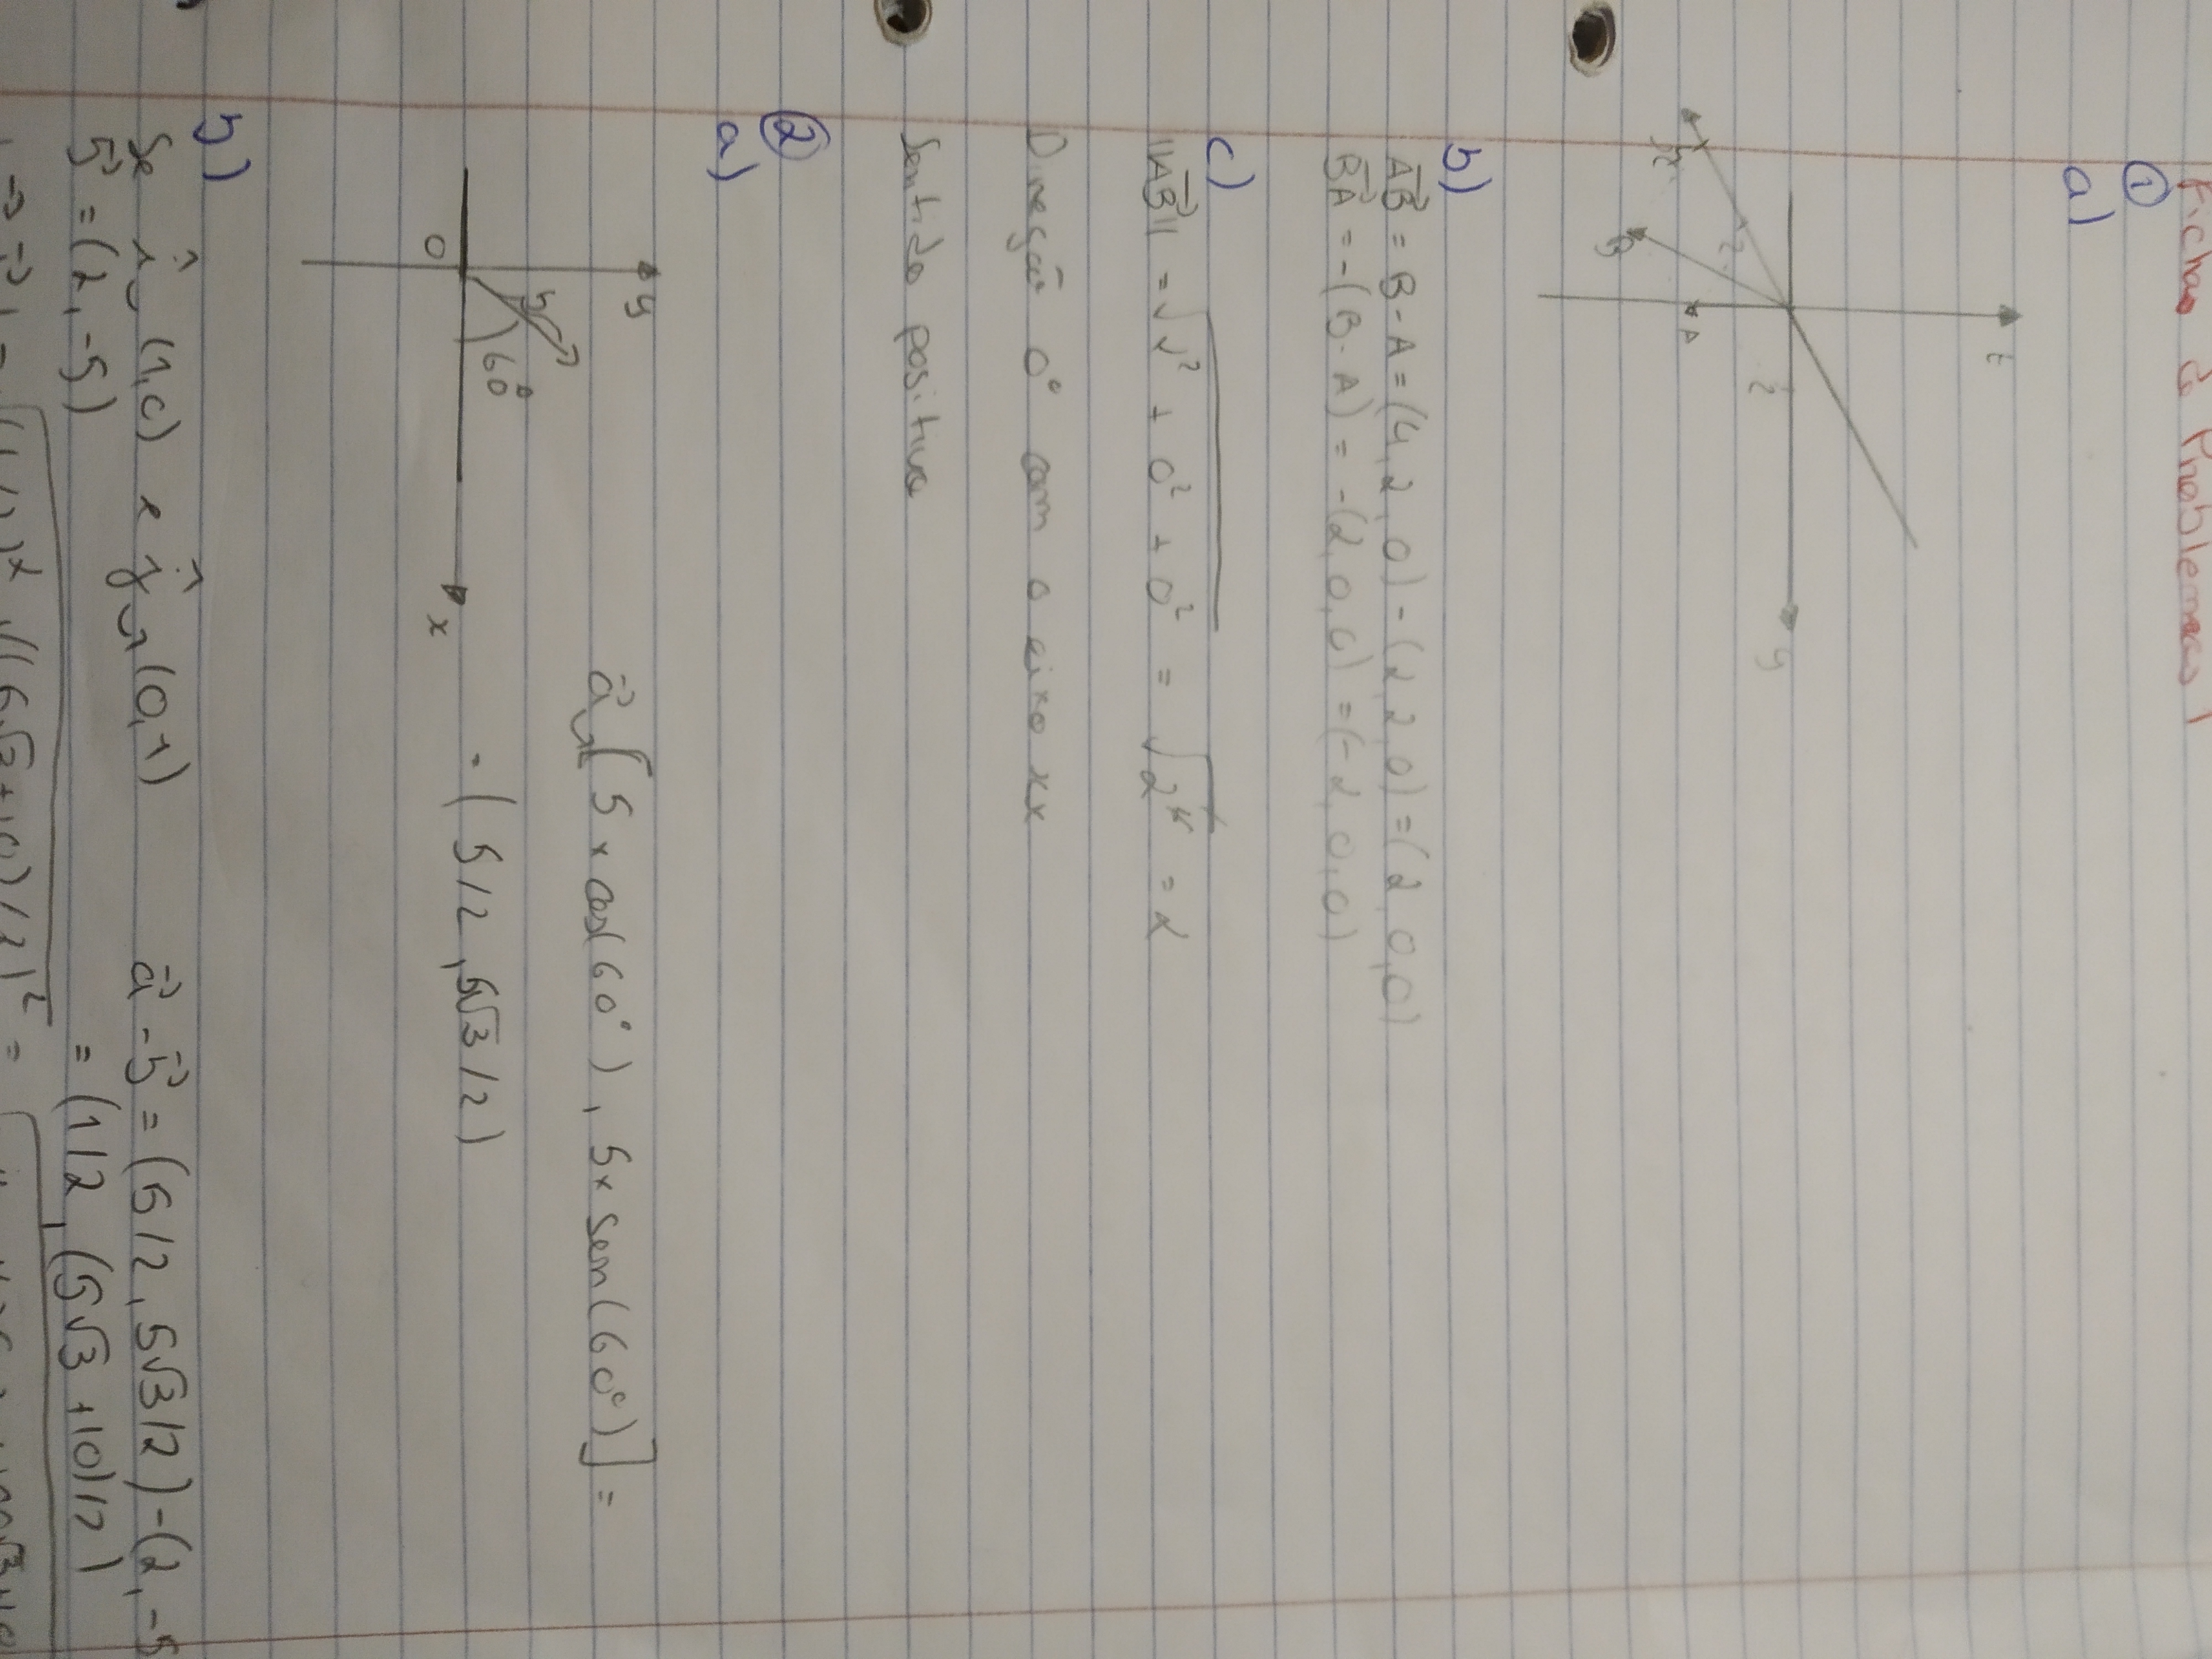 Ficha de Problemas 1
①
a)
z
2
y
2
A
B
x
b)
AB⃗ = B - A = (4, 2, 0) - (2, 2, 0) = (2, 0, 0)
BA⃗ = -(B - A) = -(2, 0, 0) = (-2, 0, 0)
c)
||AB⃗|| = √2² + 0² + 0² = √2² = 2
Direção 0° com o eixo xx
Sentido positivo
②
a)
y
5
60°
0
x
a⃗ = [5 x cos(60°), 5x sen(60°)] =
= (5/2, 5√3/2)
b)
Se î = (1, 0) e ĵ = (0, 1)
b⃗ = (2, -5)
a⃗ - b⃗ = (5/2, 5√3/2) - (2, -5
= (1/2, (5√3 + 10)/2)